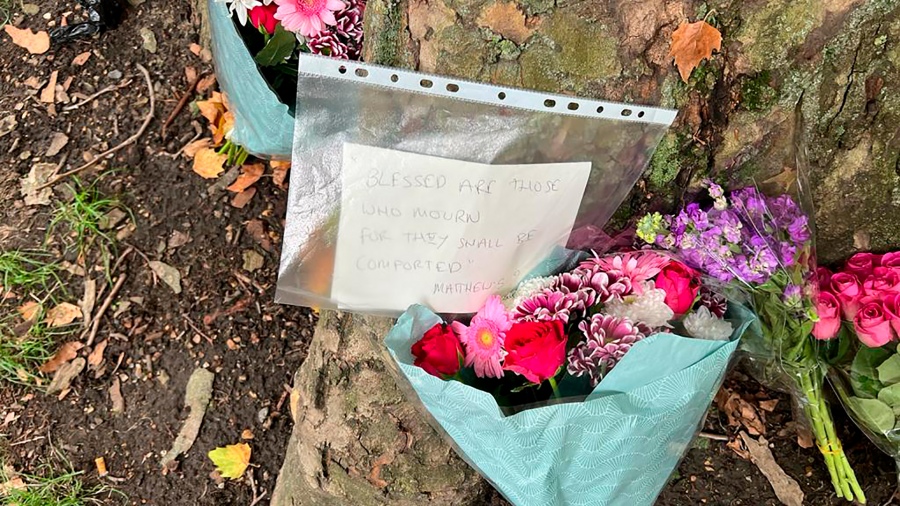 BLESSED ARE THOSE
WHO MOURN
FOR THEY SHALL BE
COMFORTED"
MATTHEW 5